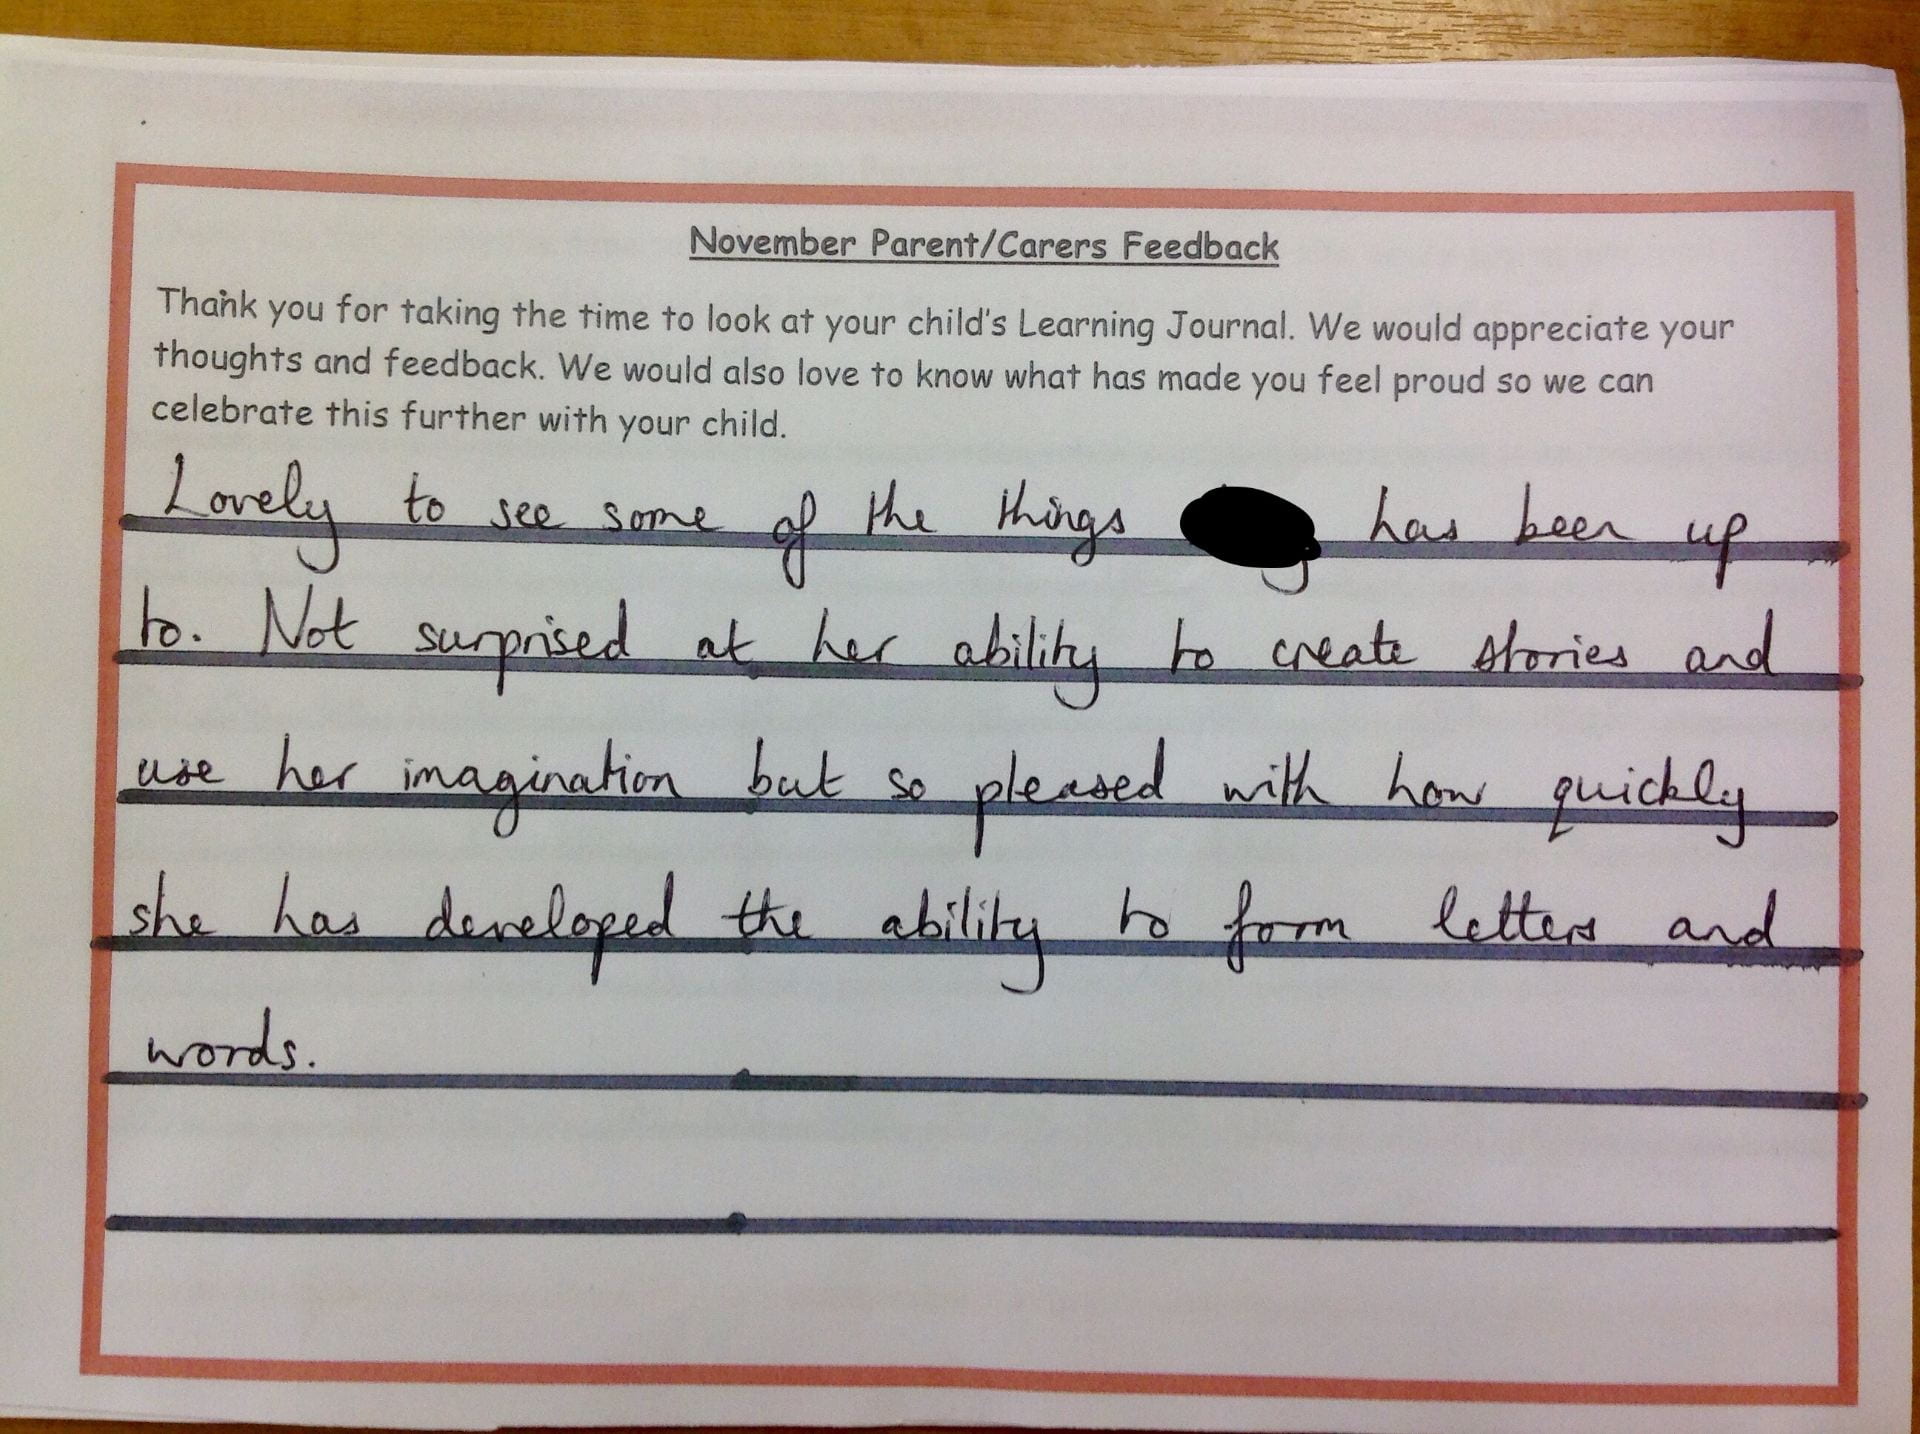 November Parent/Carers Feedback
Thank you for taking the time to look at your child's Learning Journal. We would appreciate your
thoughts and feedback. We would also love to know what has made you feel proud so we can
celebrate this further with your child.
Lovely to see some of the things has been up
to. Not surprised at her ability to create stories and
use her imagination but so pleased with how quickly
she has developed the ability to form letters and
words.